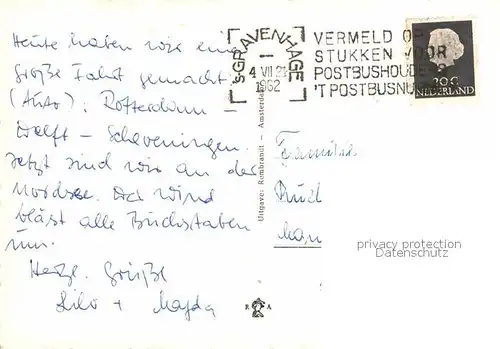 Heute haben wir eine
große Fahrt gemacht
(Auto): Rotterdam –
Delft – Scheveningen.
Jetzt sind wir an der
Nordsee. Der Wind
bläst alle Buchstaben
um.
Herzl. Grüße
Lilo + Magda
'SGRAVENHAGE
4 VII 21
1962
VERMELD OP
STUKKEN VOOR
POSTBUSHOUDERS
'T POSTBUSNU
20 C
NEDERLAND
Uitgave: Rembrandt – Amsterdam
Familie
R A
privacy protection
Datenschutz